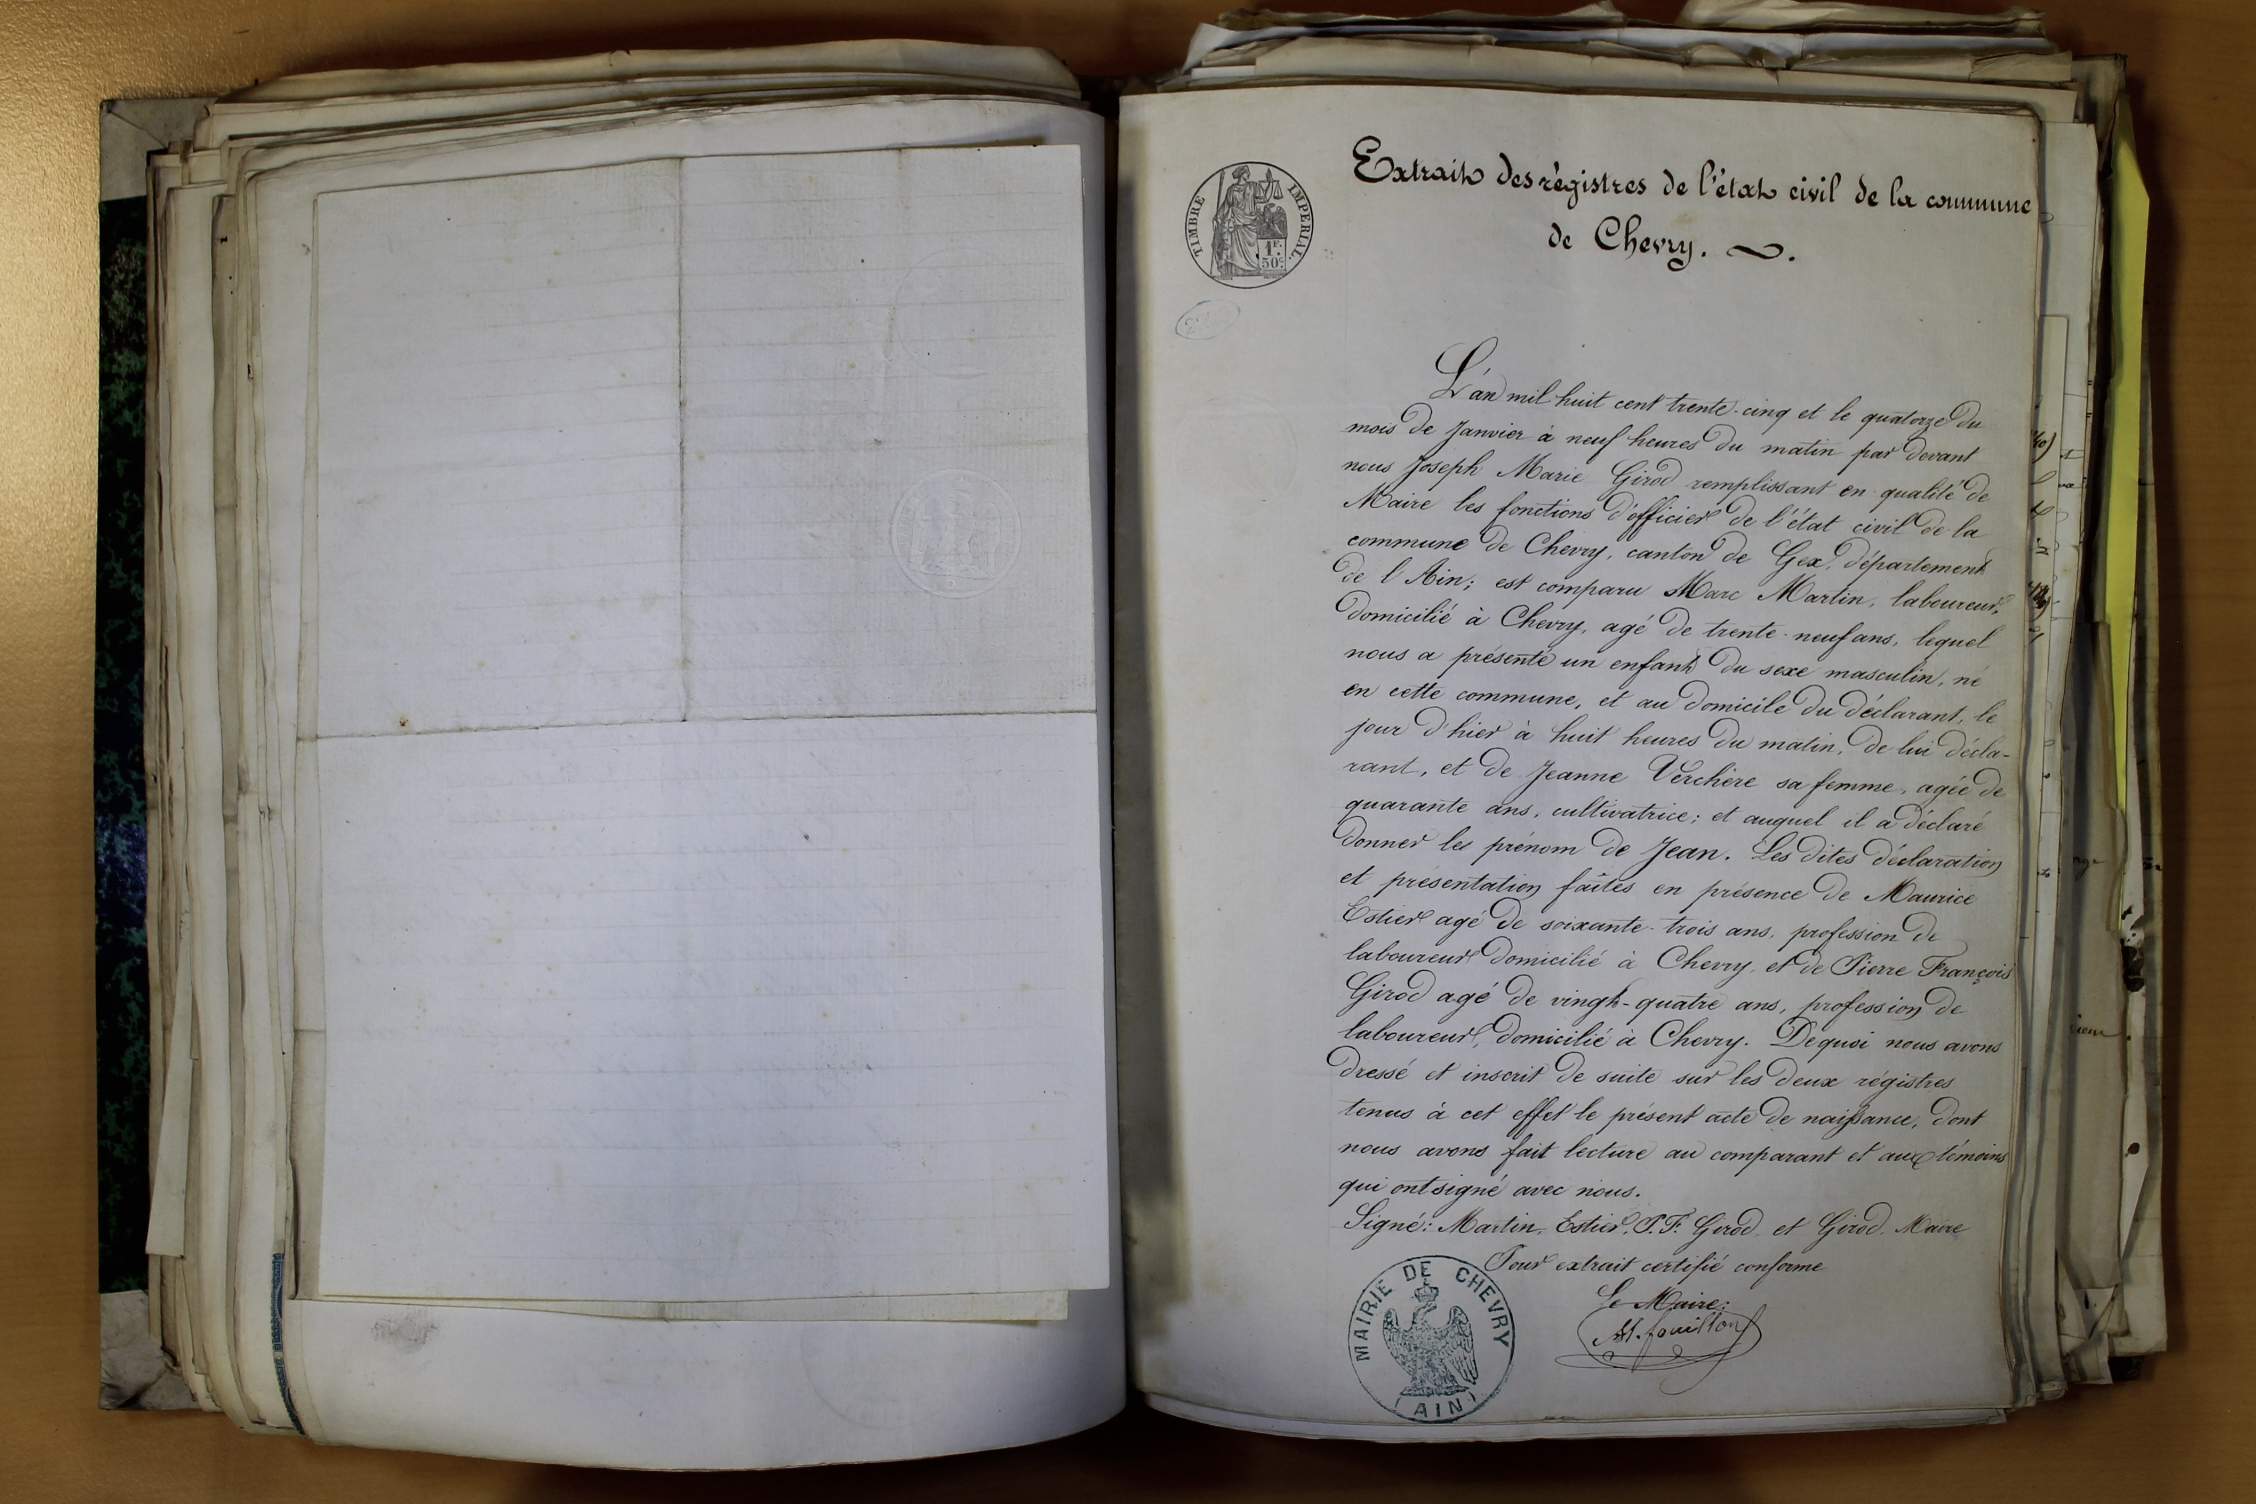 Extrait des régistres de l'état civil de la commune
de Chevry.
TIMBRE IMPERIAL.
1F.
50c.
L'an mil huit cent trente-cinq et le quatorze du
mois de Janvier à neuf heures du matin par devant
nous Joseph Marie Girod remplissant en qualité de
Maire les fonctions d'officier de l'état civil de la
commune de Chevry, canton de Gex, département
de l'Ain; est comparu Marc Martin, laboureur,
domicilié à Chevry, agé de trente-neuf ans, lequel
nous a présenté un enfant du sexe masculin, né
en cette commune, et au domicile du déclarant, le
jour d'hier à huit heures du matin, de lui décla-
rant, et de Jeanne Verchère sa femme, agée de
quarante ans, cultivatrice; et auquel il a déclaré
donner les prénom de Jean. Les dites déclaration
et présentation faites en présence de Maurice
Estier agé de soixante-trois ans, profession de
laboureur domicilié à Chevry, et de Pierre François
Girod agé de vingt-quatre ans, profession de
laboureur, domicilié à Chevry. De quoi nous avons
dressé et inscrit de suite sur les deux régistres
tenus à cet effet le présent acte de naissance, dont
nous avons fait lecture au comparant et aux témoins
qui ont signé avec nous.
Signé: Martin, Estier, P. F. Girod et Girod, Maire
Pour extrait certifié conforme
Le Maire:
MAIRIE DE CHEVRY
(AIN)